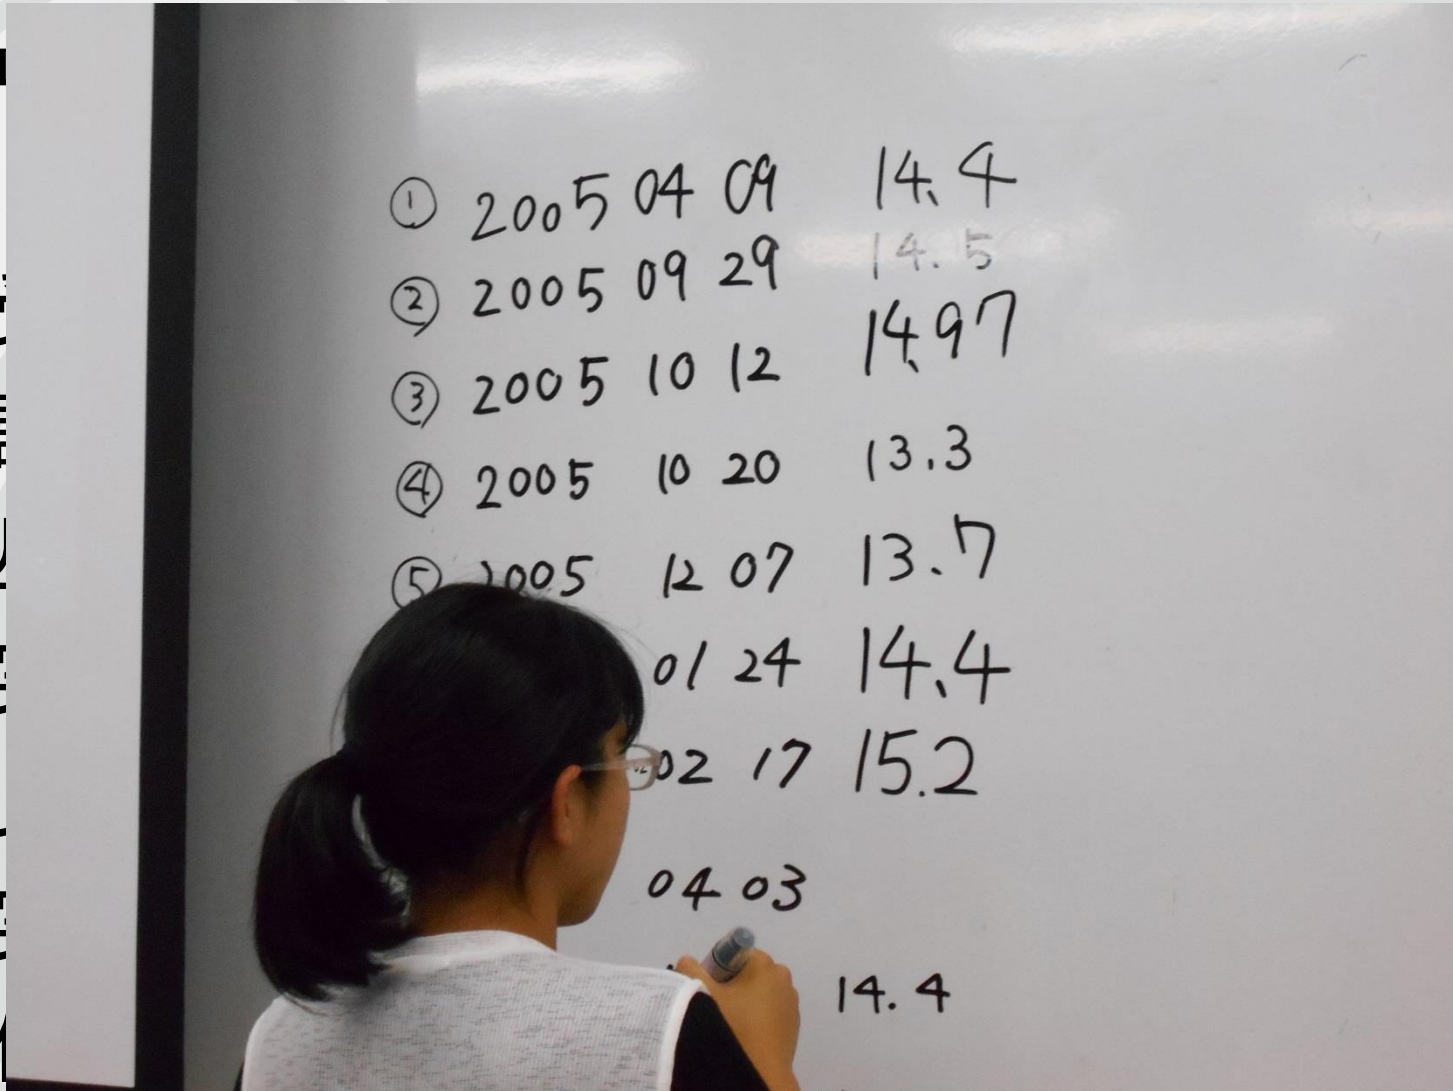 ① 2005 04 09 14.4
② 2005 09 29 14.5
③ 2005 10 12 14.97
④ 2005 10 20 13.3
⑤ 2005 12 07 13.7
01 24 14.4
02 17 15.2
04 03
14.4